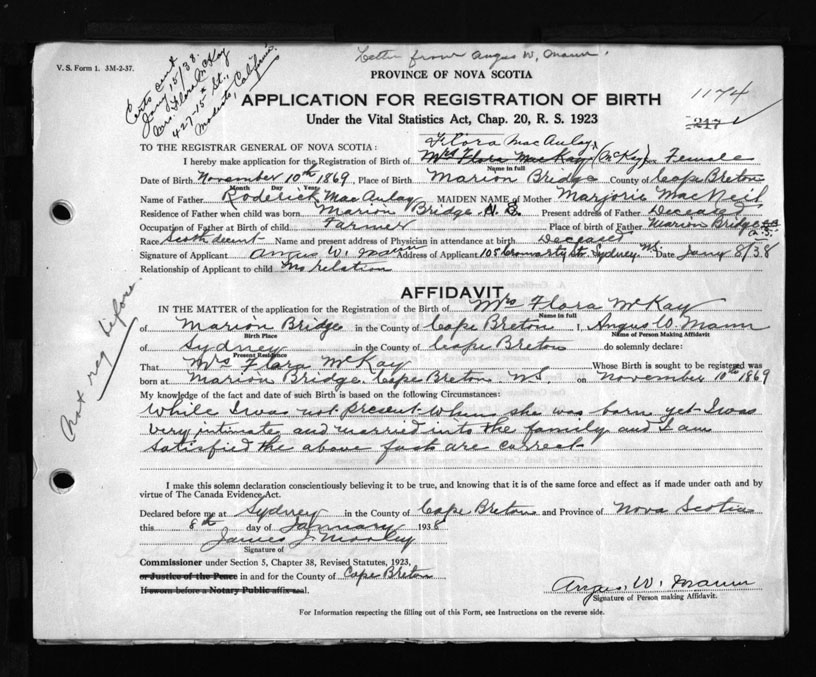 Letter from Angus W. Mann.
V. S. Form 1. 3M-2-37.
Certs sent
Jany 15/38.
Mrs. Flora McKay
427-15th St.,
Modesto, California.
PROVINCE OF NOVA SCOTIA
APPLICATION FOR REGISTRATION OF BIRTH
1174
217
Under the Vital Statistics Act, Chap. 20, R. S. 1923
TO THE REGISTRAR GENERAL OF NOVA SCOTIA:
Flora MacAulay
I hereby make application for the Registration of Birth of Mrs Flora MacKay (McKay) Sex Female
Name in full
Date of Birth November 10th 1869, Place of Birth Marion Bridge County of Cape Breton
Month Day Year
Name of Father Roderick MacAulay MAIDEN NAME of Mother Marjorie MacNeil
Residence of Father when child was born Marion Bridge, N.S. Present address of Father Deceased
Occupation of Father at Birth of child Farmer Place of birth of Father Marion Bridge
Race Scotch decent Name and present address of Physician in attendance at birth Deceased
Signature of Applicant Angus W. Mann Address of Applicant 105 Cromarty St. Sydney, N.S. Date Jany 8/38
Relationship of Applicant to child No relation
AFFIDAVIT
IN THE MATTER of the application for the Registration of the Birth of Mrs Flora McKay
Name in full
of Marion Bridge in the County of Cape Breton I, Angus W. Mann
Birth Place Name of Person Making Affidavit
of Sydney in the County of Cape Breton do solemnly declare:
Present Residence
That Mrs Flora McKay Whose Birth is sought to be registered was
born at Marion Bridge Cape Breton N.S. on November 10th 1869
Not reg before.
My knowledge of the fact and date of such Birth is based on the following Circumstances:
While I was not present when she was born yet I was
very intimate and married into the family and I am
satisfied the above facts are correct
I make this solemn declaration conscientiously believing it to be true, and knowing that it is of the same force and effect as if made under oath and by
virtue of The Canada Evidence Act.
Declared before me at Sydney in the County of Cape Breton and Province of Nova Scotia
this 8th day of January 1938
James J. Morley
Signature of
Commissioner under Section 5, Chapter 38, Revised Statutes, 1923,
or Justice of the Peace in and for the County of Cape Breton
If sworn before a Notary Public affix seal.
Angus. W. Mann
Signature of Person making Affidavit.
For Information respecting the filling out of this Form, see Instructions on the reverse side.